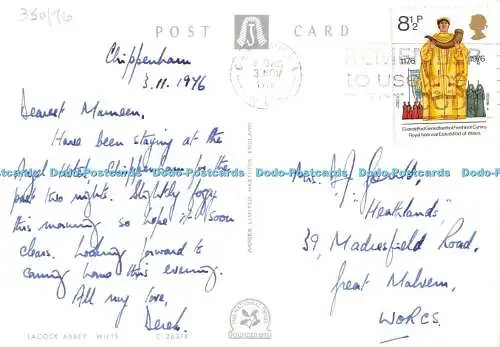 350/76
POST CARD
Chippenham
3.11.1976
Dearest Maureen,
Have been staying at the
Angel Hotel Chippenham for the
past two nights. Slightly foggy
this morning so hope it soon
clears. Looking forward to
coming home this evening.
All my love,
Derek.
LACOCK ABBEY WILTS
C 2637X
JARROLD
THE NATIONAL TRUST
8½P
1176 1976
Eisteddfod Genedlaethol Frenhinol Cymru
Royal National Eisteddfod of Wales
REMEMBER
to use
Mrs. D. J.
"Heathlands",
39, Madresfield Road,
Great Malvern,
WORCS.
Dodo-Postcards Dodo-Postcards Dodo-Postcards Dodo-Postcards Dodo-Postcards